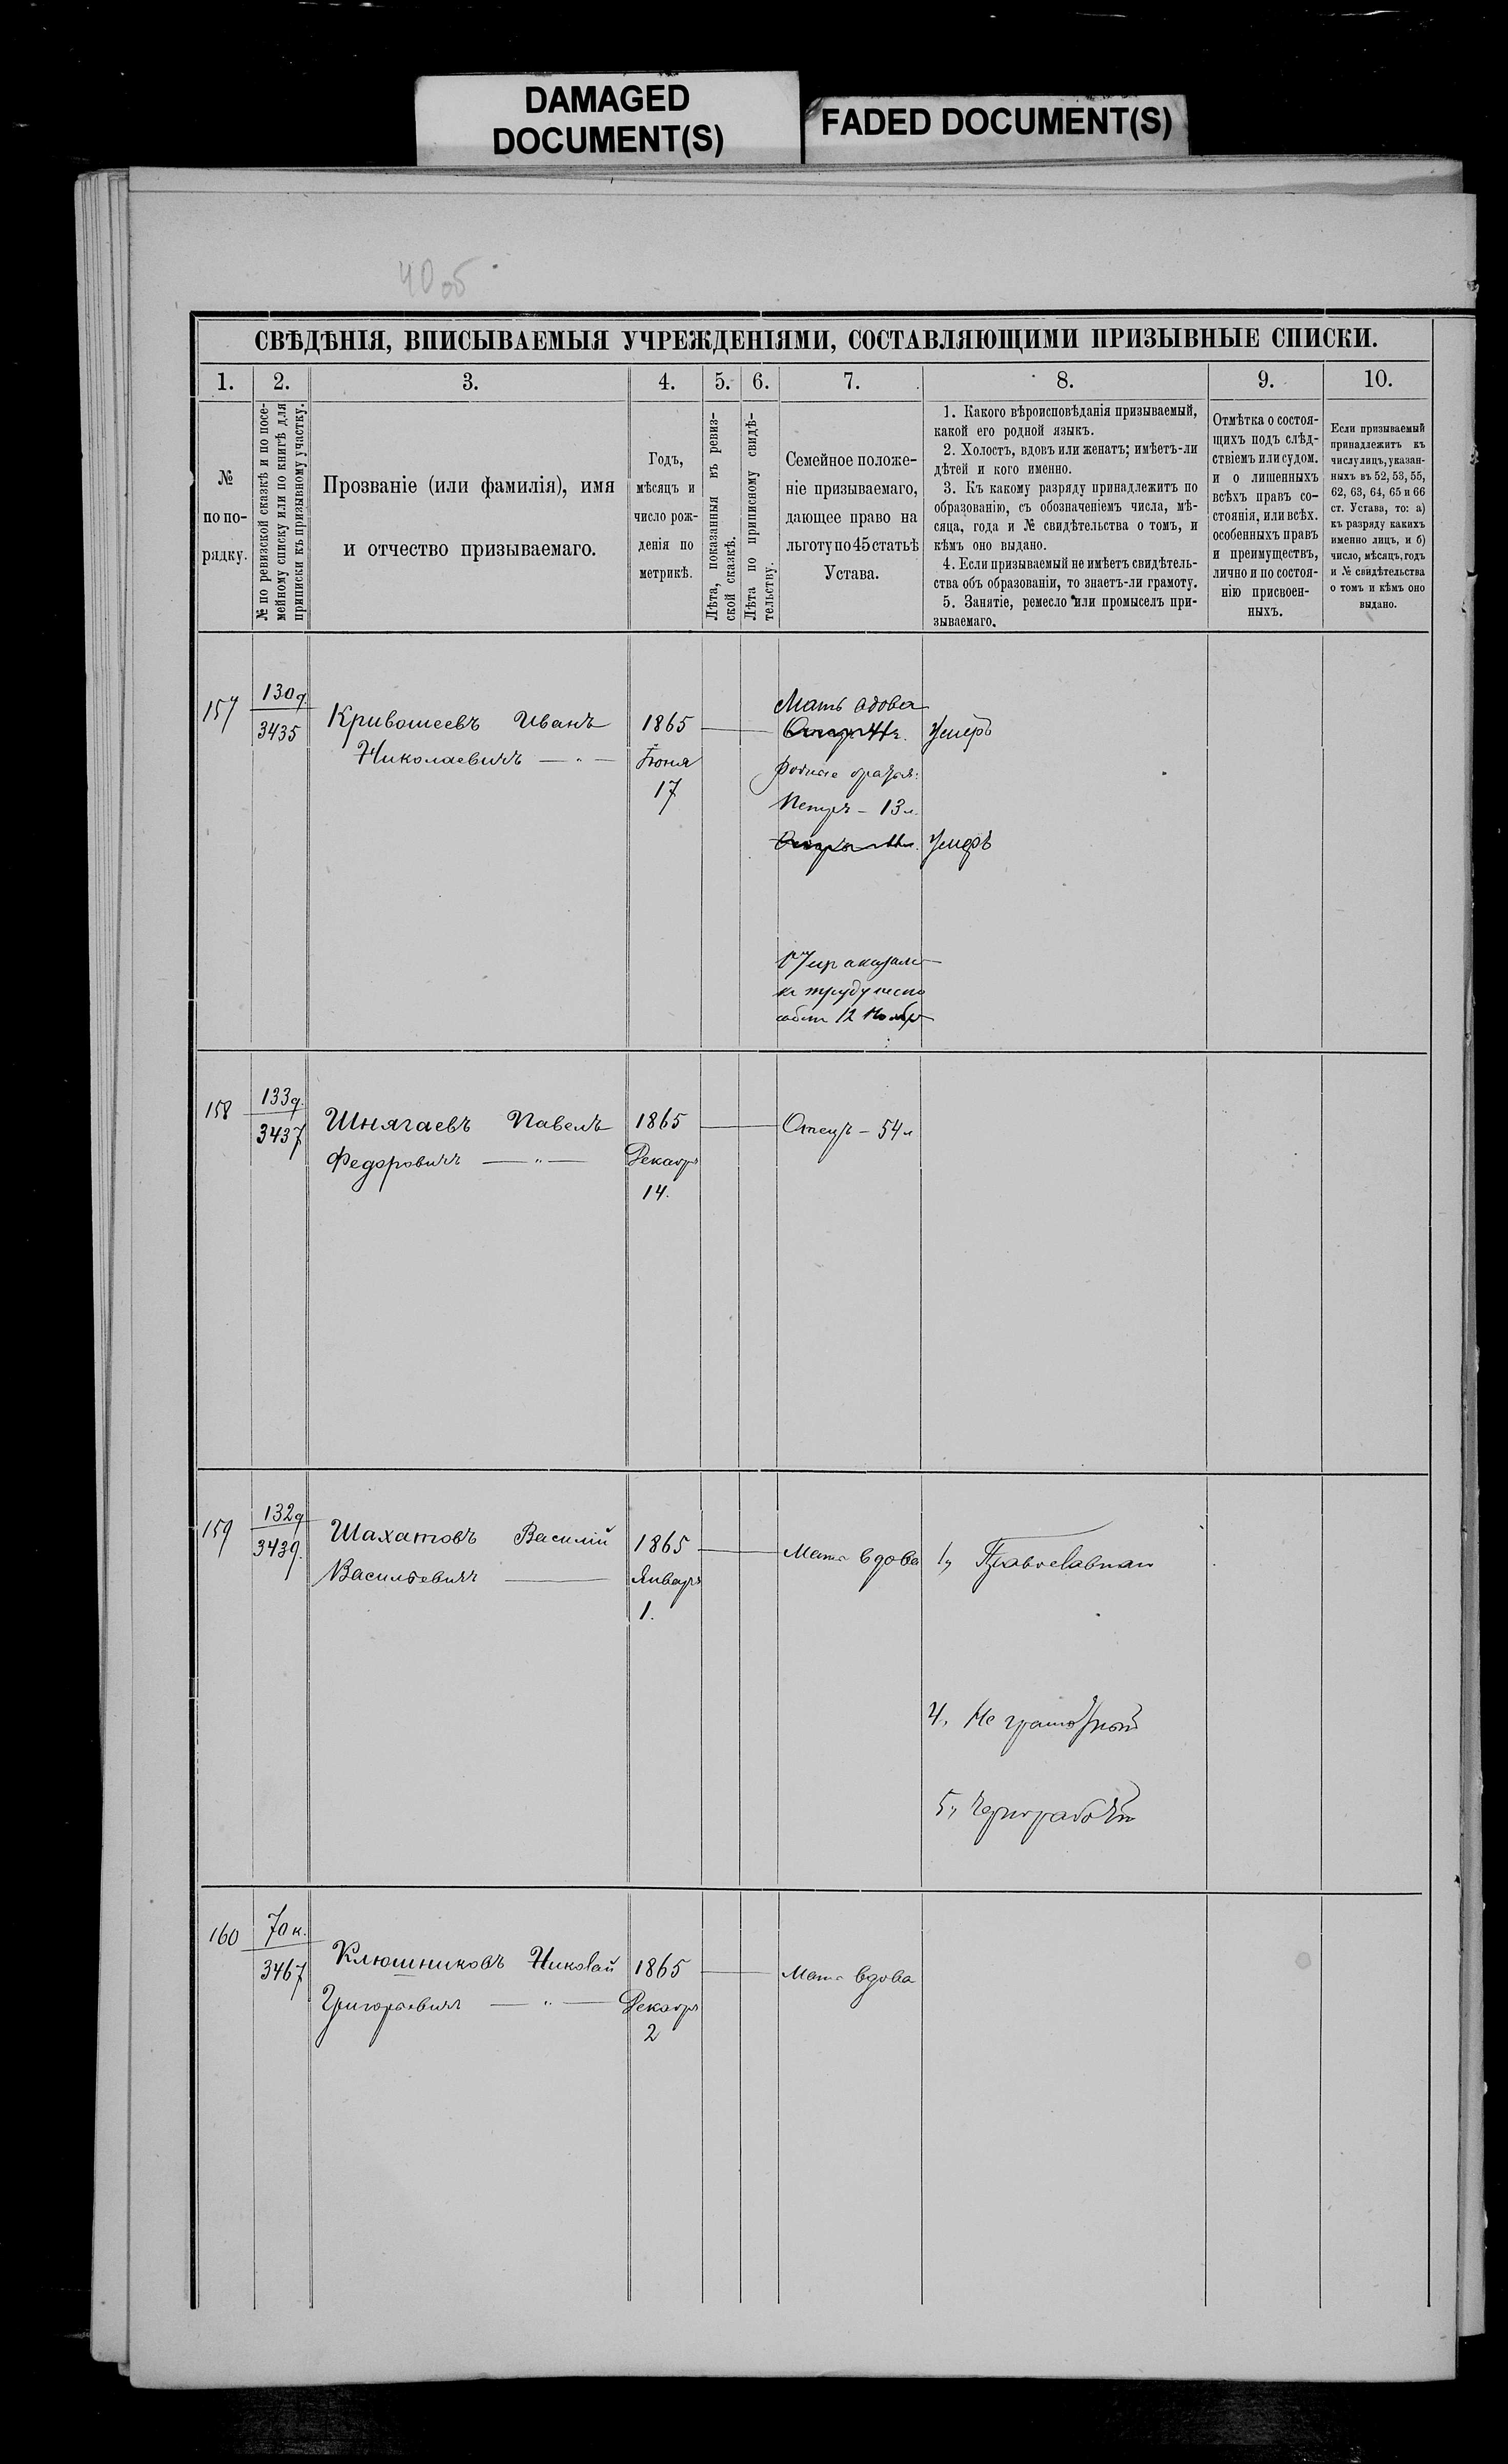 DAMAGED
DOCUMENT(S)
FADED DOCUMENT(S)
40 об
СВѢДѢНІЯ, ВПИСЫВАЕМЫЯ УЧРЕЖДЕНІЯМИ, СОСТАВЛЯЮЩИМИ ПРИЗЫВНЫЕ СПИСКИ.
1.
2.
3.
4.
5.
6.
7.
8.
9.
10.
№
по по-
рядку.
№ по ревизской сказкѣ и по посе-
мейному списку или по книгѣ для
приписки къ призывному участку.
Прозваніе (или фамилія), имя
и отчество призываемаго.
Годъ,
мѣсяцъ и
число рож-
денія по
метрикѣ.
Лѣта, показанныя въ ревиз-
ской сказкѣ.
Лѣта по приписному свидѣ-
тельству.
Семейное положе-
ніе призываемаго,
дающее право на
льготу по 45 статьѣ
Устава.
1. Какого вѣроисповѣданія призываемый,
какой его родной языкъ.
2. Холостъ, вдовъ или женатъ; имѣетъ-ли
дѣтей и кого именно.
3. Къ какому разряду принадлежитъ по
образованію, съ обозначеніемъ числа, мѣ-
сяца, года и № свидѣтельства о томъ, и
кѣмъ оно выдано.
4. Если призываемый не имѣетъ свидѣтель-
ства объ образованіи, то знаетъ-ли грамоту.
5. Занятіе, ремесло или промыселъ при-
зываемаго.
Отмѣтка о состоя-
щихъ подъ слѣд-
ствіемъ или судом.
и о лишенныхъ
всѣхъ правъ со-
стоянія, или всѣх.
особенныхъ правъ
и преимуществъ,
лично и по состоя-
нію присвоен-
ныхъ.
Если призываемый
принадлежитъ къ
числу лицъ, указан-
ныхъ въ 52, 53, 55,
62, 63, 64, 65 и 66
ст. Устава, то: а)
къ разряду какихъ
именно лицъ, и б)
число, мѣсяцъ, годъ
и № свидѣтельства
о томъ и кѣмъ оно
выдано.
157
130
3435
Кривошеевъ Иванъ
Николаевичъ — „ —
1865
Іюня
17
Мать вдова
Умеръ
родные братья:
Петръ – 13 л.
Умеръ
158
133
3437
Шнягаевъ Павелъ
Федоровичъ — „ —
1865
Декабр
14.
Отецъ – 54 л
159
132
3439.
Шахатовъ Василій
Васильевичъ —
1865
Январ
1.
Мать вдова
1, Православнаи
4, Не грамотный
5, Чернорабочій
160
70 к.
3467
Клюшниковъ Николай
Григорьевичъ — „ —
1865
Декабр
2
Мать вдова